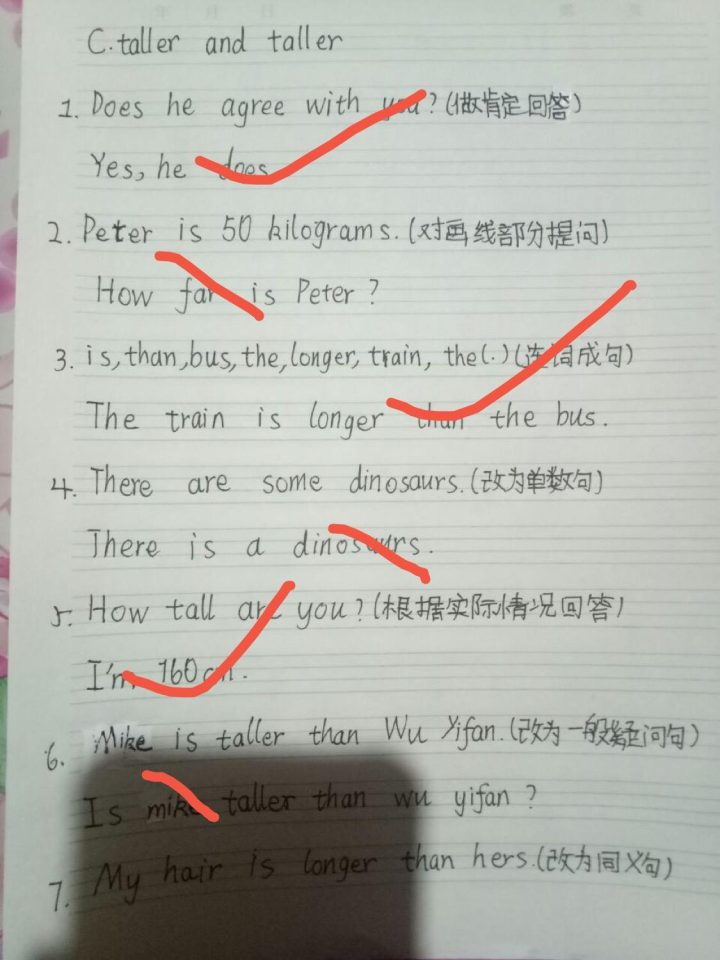 C.taller and taller
1. Does he agree with you? (做肯定回答)
Yes, he does
2. Peter is 50 kilograms. (对画线部分提问)
How far is Peter?
3. is, than, bus, the, longer, train, the(.) (连词成句)
The train is longer than the bus.
4. There are some dinosaurs. (改为单数句)
There is a dinosaurs.
5. How tall are you? (根据实际情况回答)
I'm 160cm.
6. Mike is taller than Wu Yifan. (改为一般疑问句)
Is mike taller than wu yifan?
7. My hair is longer than hers. (改为同义句)